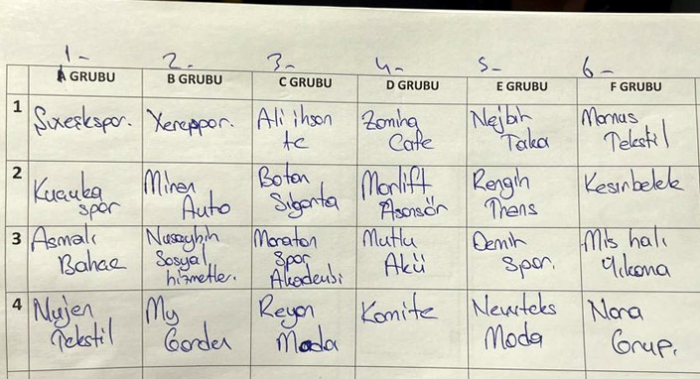 1- 2- 3- 4- 5- 6-
A GRUBU B GRUBU C GRUBU D GRUBU E GRUBU F GRUBU
1 Xerepspor. Ali ihson Nejbir Mamas
tc Cafe Taka Tekstil
2 Miran Boton Monlift Rengin Kesinbelek
spor Auto Sigorta Asansör Trans
3 Asmalı Nusaybin Maraton Mutlu Demir Mis halı
Bahçe Sosyal Spor Akü Spor. Yıkama
hizmetler. Akademisi
4 Nujen My Reyon Komite Newteks Nora
Tekstil Gorden Moda Moda Grup.